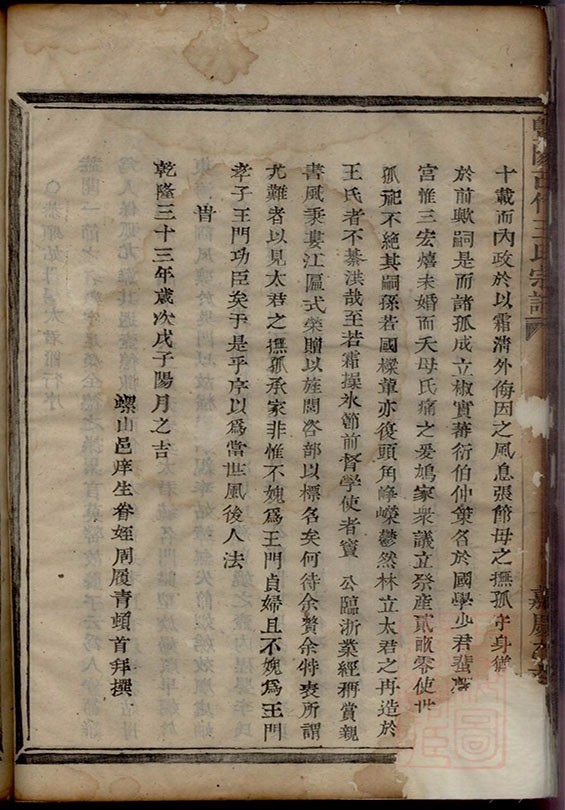 十載而內政於以霜清外侮因之風息張節母之撫孤守身猶
於前歟嗣是而諸孤成立椒實蕃衍伯仲葉名於國學少君蜚
宮惟三宏熺未婚而夭母氏痛之爰鳩家衆議立祭產貳畝零使世
孤祀不絶其嗣孫若國樑葦亦復頭角崢嶸鬱然林立太君之再造於
王氏者不綦洪哉至若霜操氷節前督學使者竇 公臨浙業經稱賞親
書風秉婁江匾式榮贈以旌閭咨部以標名矣何待余贅余特表所謂
尤難者以見太君之撫孤承家非惟不媿爲王門貞婦且不媿爲王門
孝子王門功臣矣于是乎序以爲當世風後人法
旹
乾隆三十三年歲次戌子陽月之吉
螺山邑庠生眷姪周履青頓首拜撰
王氏宗譜
嘉慶